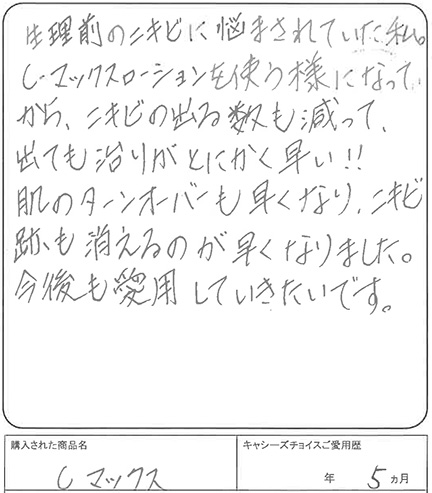 生理前のニキビに悩まされていた私。
C-マックスローションを使う様になって
から、ニキビの出る数も減って、
出ても治りがとにかく早い!!
肌のターンオーバーも早くなり、ニキビ
跡も消えるのが早くなりました。
今後も愛用していきたいです。
購入された商品名
Cマックス
キャシーズチョイスご愛用歴
年 5ヵ月